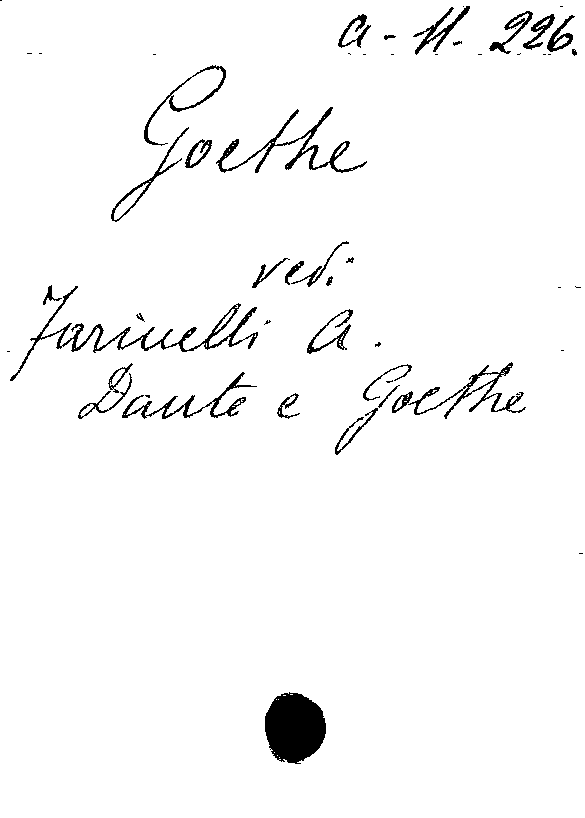 a - 11 - 226.
Goethe
vedi
Farinelli A.
Dante e Goethe